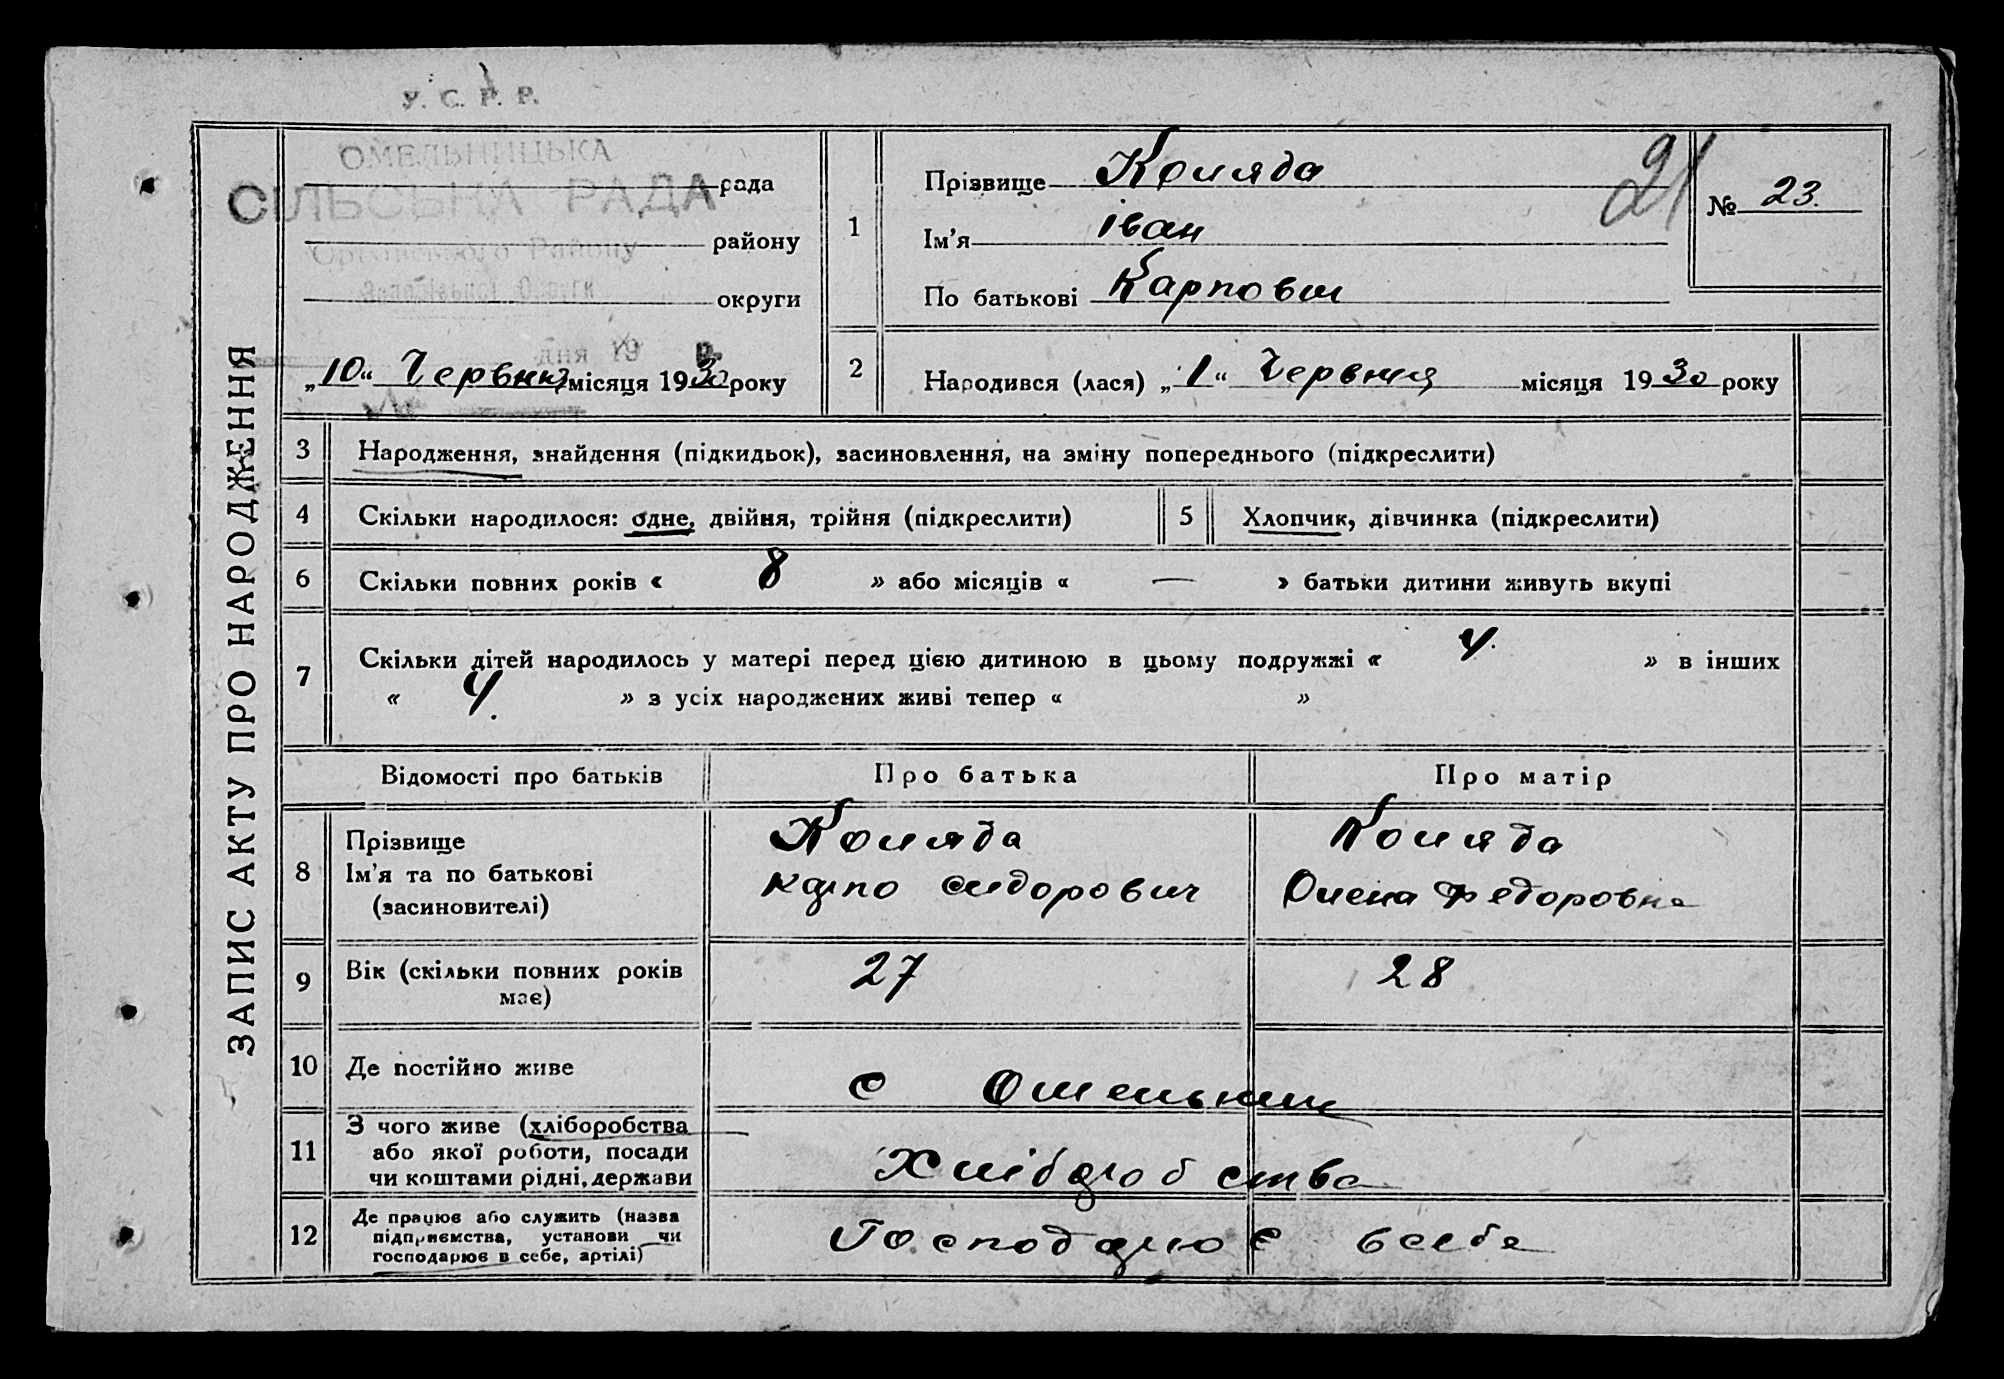 У. С. Р. Р.
ОМЕЛЬНИЦЬКА
СІЛЬСЬКА РАДА
рада
району
Району
округи
дня 19 р.
„10“ Червня місяця 1930 року
ЗАПИС АКТУ ПРО НАРОДЖЕННЯ
1
Прізвище Коляда
Ім’я Іван
По батькові Карпович
21
№ 23.
2
Народився (лася) „1“ Червня місяця 1930 року
3 Народження, знайдення (підкидьок), засиновлення, на зміну попереднього (підкреслити)
4 Скільки народилося: одне, двійня, трійня (підкреслити)
5 Хлопчик, дівчинка (підкреслити)
6 Скільки повних років « 8 » або місяців « — » батьки дитини живуть вкупі
7 Скільки дітей народилось у матері перед цією дитиною в цьому подружжі « 4. » в інших
« 4. » з усіх народжених живі тепер « »
Відомості про батьків Про батька Про матір
8 Прізвище Коляда Коляда
Ім’я та по батькові Карпо Сидорович Олена Федоровна
(засиновителі)
9 Вік (скільки повних років 27 28
має)
10 Де постійно живе с Омельник
11 З чого живе (хліборобства
або якої роботи, посади Хліборобства
чи коштами рідні, держави
12 Де працює або служить (назва
підприємства, установи чи Господарює в себе
господарює в себе, артілі)